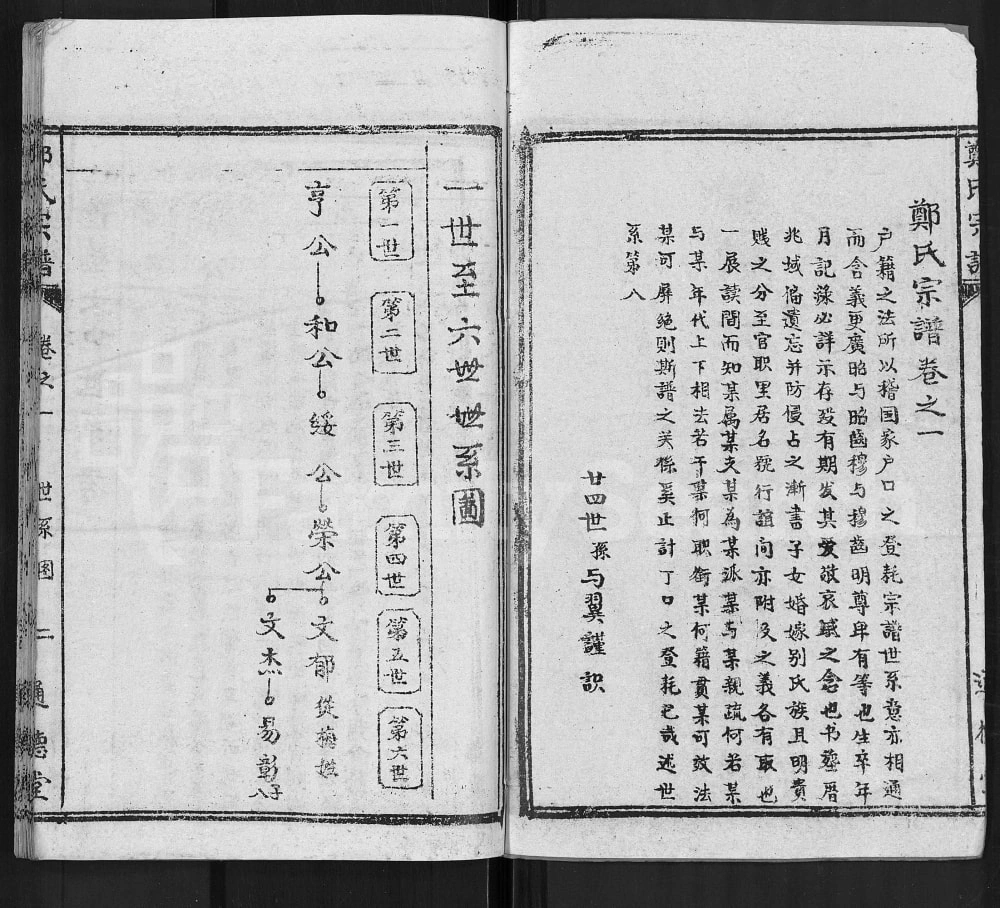 鄭氏宗譜
鄭氏宗譜卷之一
户籍之法所以稽国家户口之登耗宗譜世系意亦相通
而含義更廣昭与昭齒穆与穆齒明尊卑有等也生卒年
月記錄必詳示存殁有期发其爱敬哀戚之念也书塟厝
兆域俻遺忘并防侵占之漸書子女婚嫁别氏族且明貴
贱之分至官职里居名號行誼间亦附及之義各有取也
一展读間而知某属某夫某為某派某与某親疏何若某
与某年代上下相法若干某何职衔某何籍貫某可效法
某可屏绝则斯譜之关係奚止計丁口之登耗已哉述世
系第八
廿四世孫与翼謹识
一世至六世世系圖
第一世
第二世
第三世
第四世
第五世
第六世
亨公
和公
绥公
榮公
文郁從楊姓
文杰
易彰
子八
鄭氏宗譜
卷之一
世系图
二
通德堂